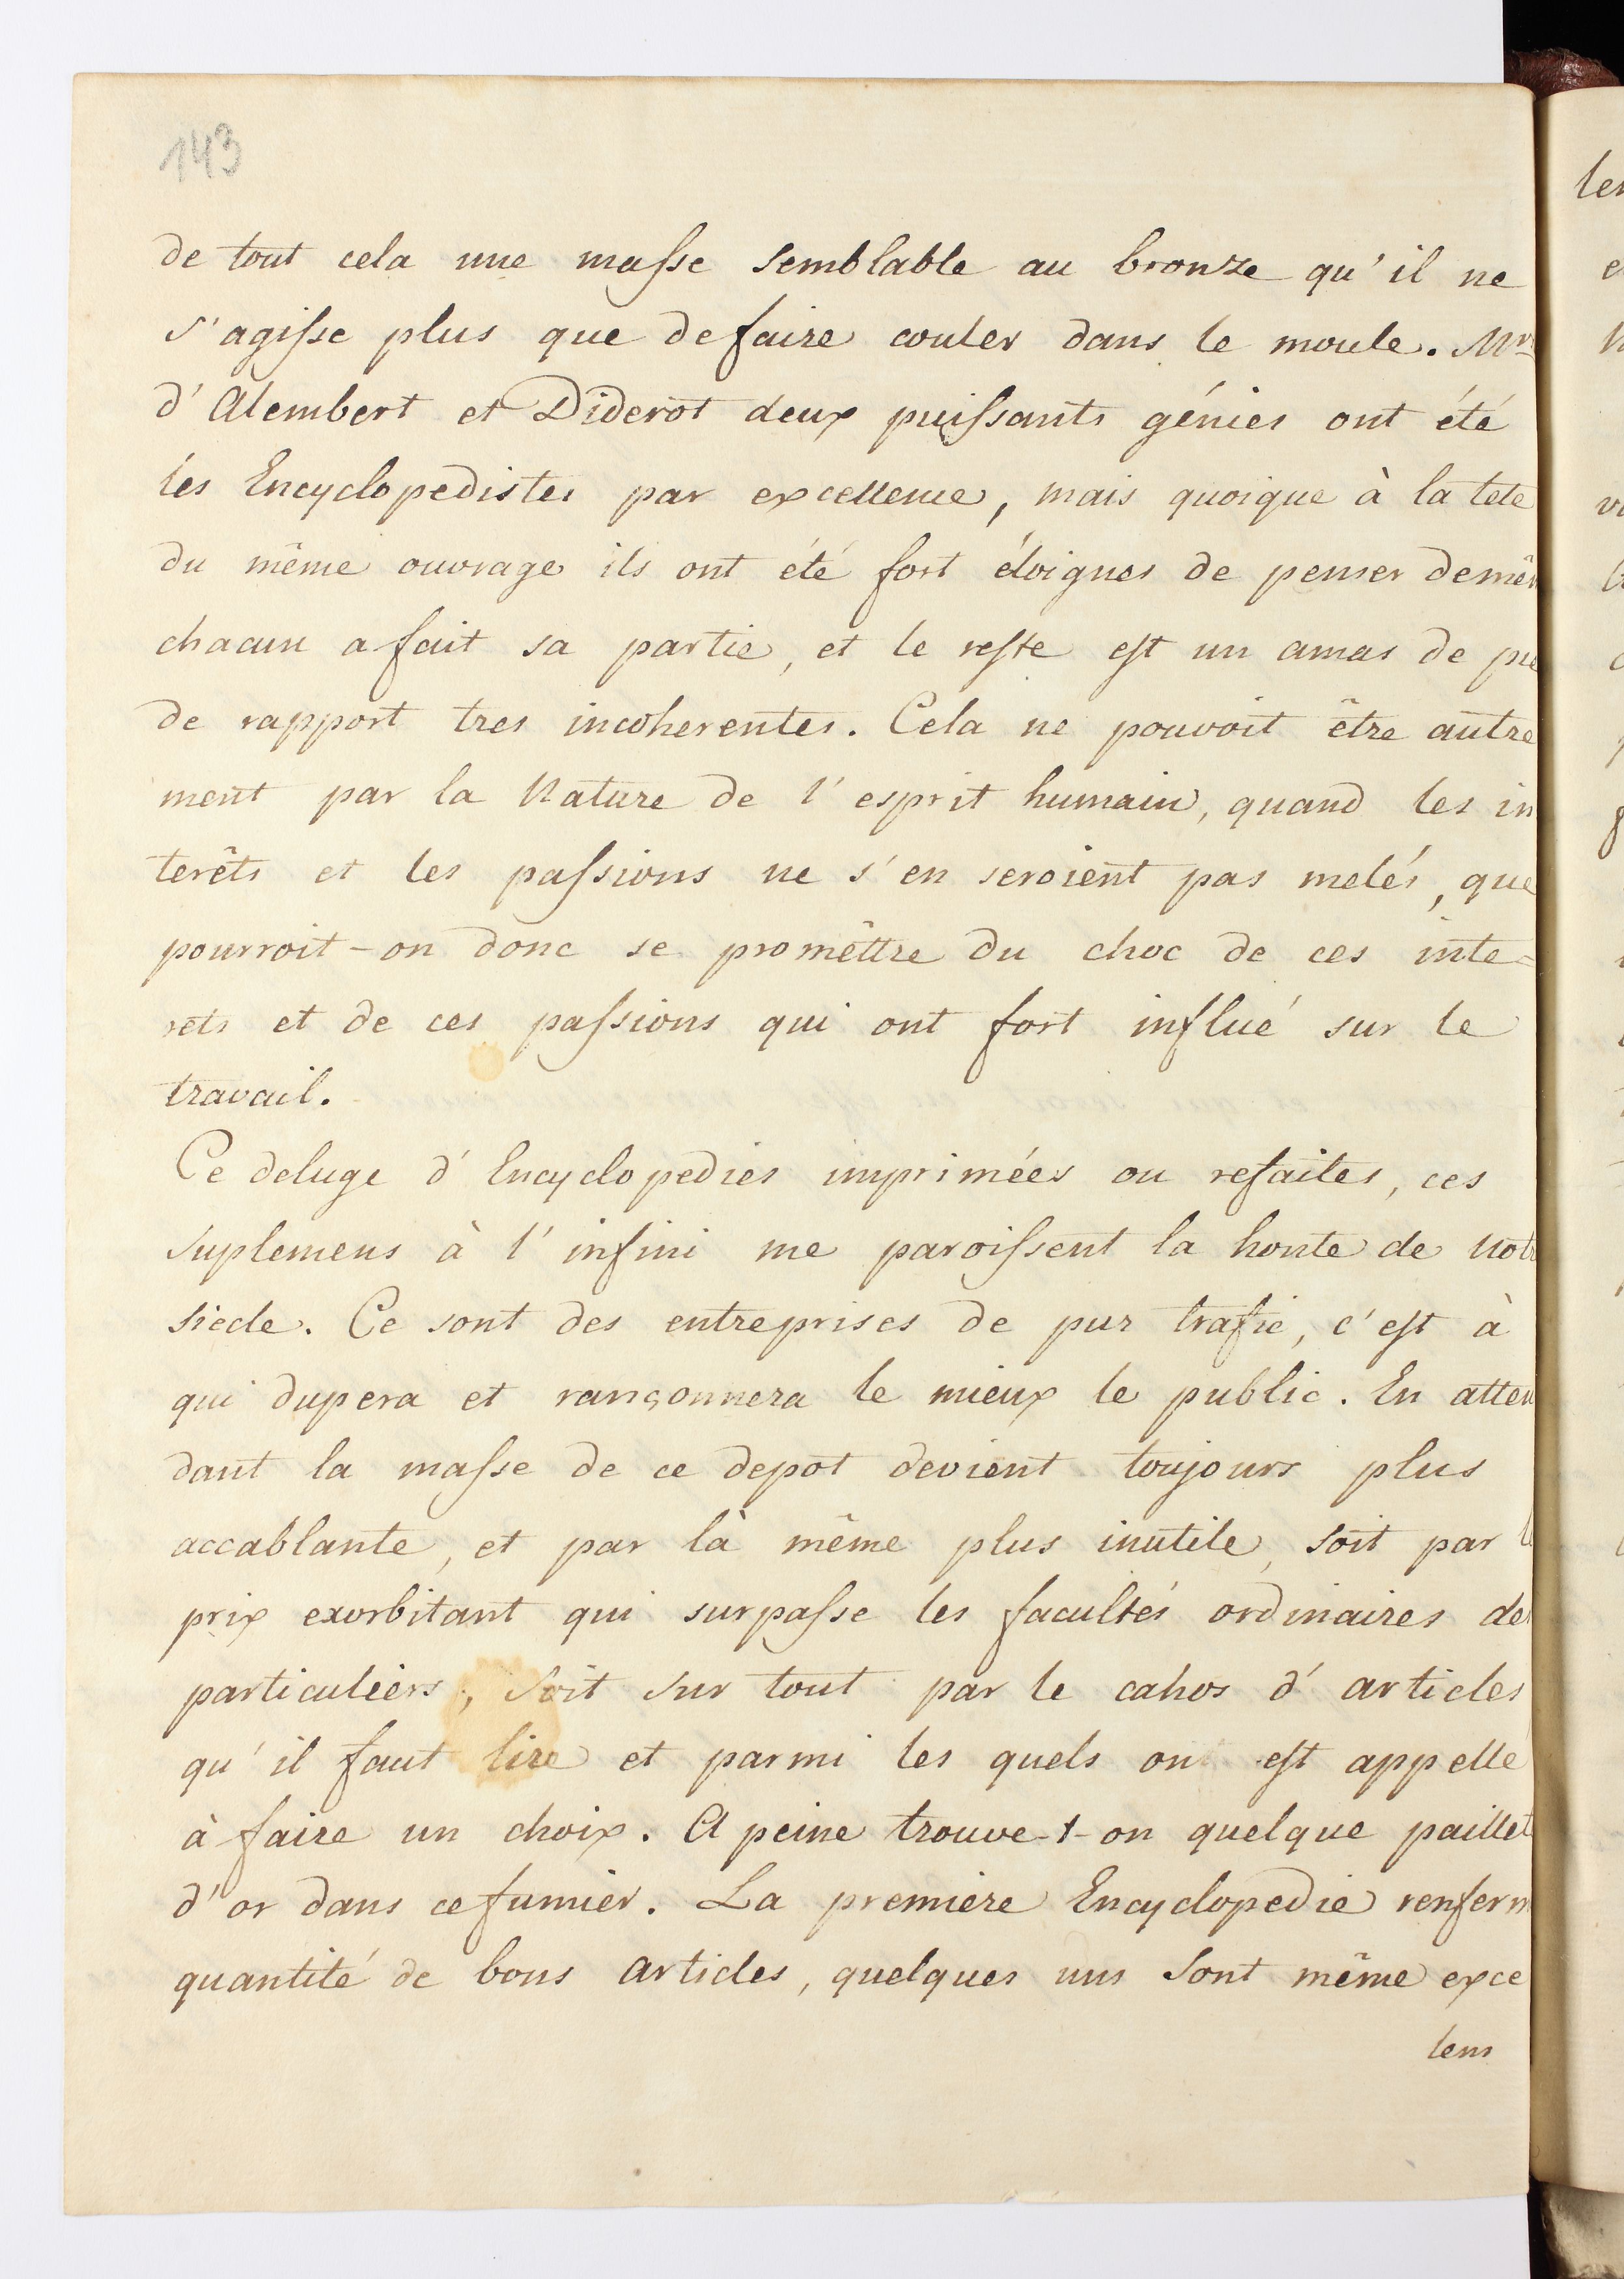 143
de tout cela une masse semblable au bronze qu'il ne
s'agisse plus que de faire couler dans le moule. Mrs
d'Alembert et Diderot deux puissants génies ont été
les Encyclopedistes par excellence, mais quoique à la tete
du même ouvrage ils ont été fort éloignes de penser de mêm
chacun a fait sa partie, et le reste est un amas de pie
de rapport tres incoherentes. Cela ne pouvoit être autre
ment par la Nature de l'esprit humain, quand les in
terêts et les passions ne s'en seroient pas melés, que
pourroit-on donc se promêttre du choc de ces inte=
rets et de ces passions qui ont fort influé sur le
travail.
Ce deluge d'Encyclopedies imprimées ou refaites, ces
suplemens à l'infini me paroissent la honte de Not
siècle. Ce sont des entreprises de pur trafic, c'est à
qui dupera et rançonnera le mieux le public. En atten
dant la masse de ce depot devient toujours plus
accablante, et par là même plus inutile, soit par l
prix exorbitant qui surpasse les facultés ordinaires de
particuliers, soit sur tout par le cahos d'articles
qu'il faut lire et parmi les quels on est appellé
à faire un choix. A peine trouve-t-on quelque paillet
d'or dans ce fumier. La premiere Encyclopedie renferm
quantité de bons articles, quelques uns sont même exce
lens